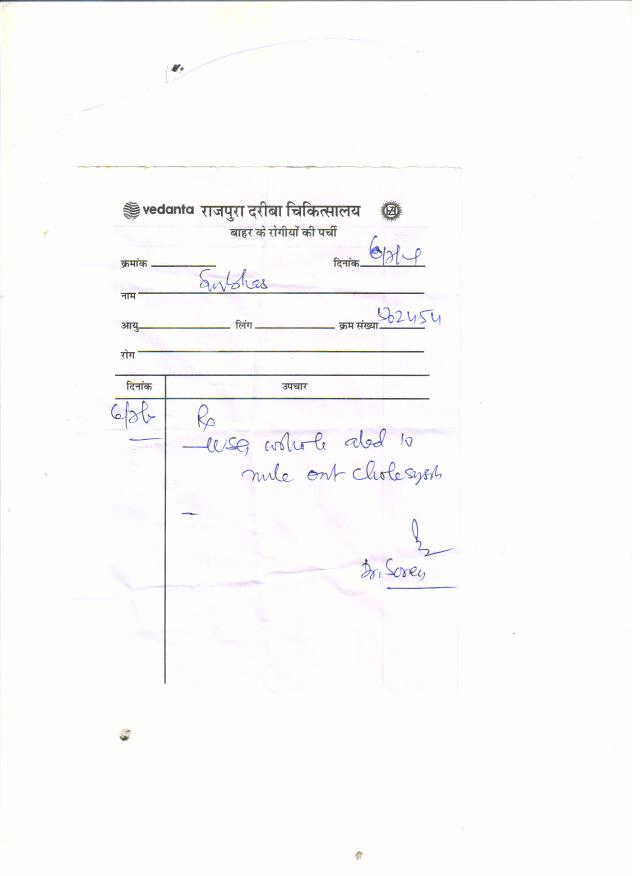 vedanta राजपुरा दरीबा चिकित्सालय
बाहर के रोगीयों की पर्ची
क्रमांक दिनांक
नाम Subhas
आयु लिंग क्रम संख्या 562454
रोग
दिनांक उपचार
Rx
USG whole abd to
rule out Cholesysti
Dr. Soren